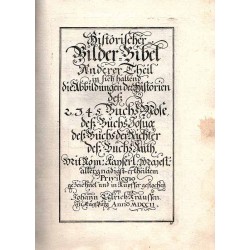 Historischer
Bilder Bibel
Anderer Theil
in sich haltend
die Abbildungen der Historien
deß
2. 3. 4. 5. Buchs Mose,
deß Buchs Josuæ
deß Buchs der Richter
deß Buchs Ruth.
Mit Röm. Kayserl. Majest.
allergnädigst ertheiltem
Privilegio
gezeichnet und in Kupffer gestochen
von
Johann Ulrich Kraussen
in Augspurg Anno MDCCII.